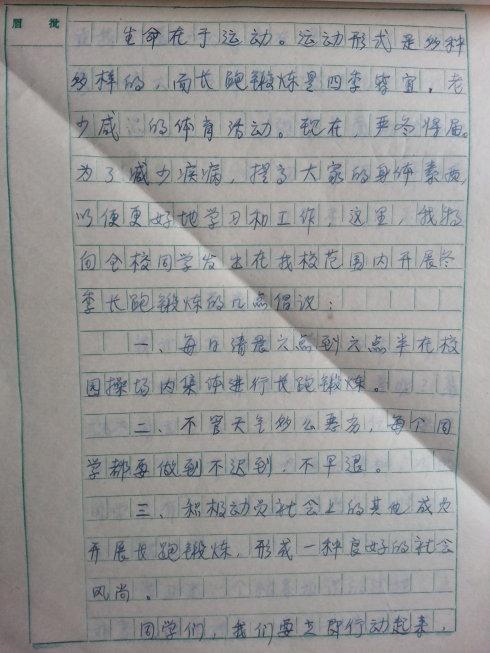 眉 批
生命在于运动。运动形式是多种
多样的，而长跑锻炼是四季皆宜，老
少咸的体育活动。现在，严冬将届。
为了减少疾病，提高大家的身体素质，
以便更好地学习和工作，这里，我特
向全校同学发出在我校范围内开展冬
季长跑锻炼的几点倡议：
一、每日清晨六点到六点半在校
园操场内集体进行长跑锻炼。
二、不管天气多么恶劣，每个同
学都要做到不迟到，不早退。
三、积极动员社会上的其他成员
开展长跑锻炼，形成一种良好的社会
风尚。
同学们，我们要立即行动起来，